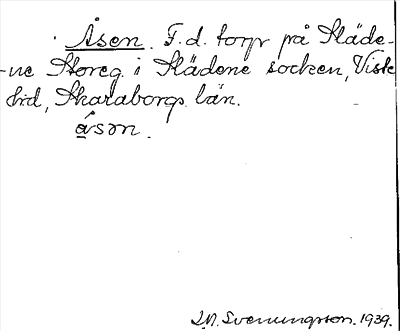 Åsen. F.d. torp på Släde-
-ne Storeg. i Slädene socken, Viste
hd, Skaraborgs län.
åsən.
J.N. Svenungsson. 1939.